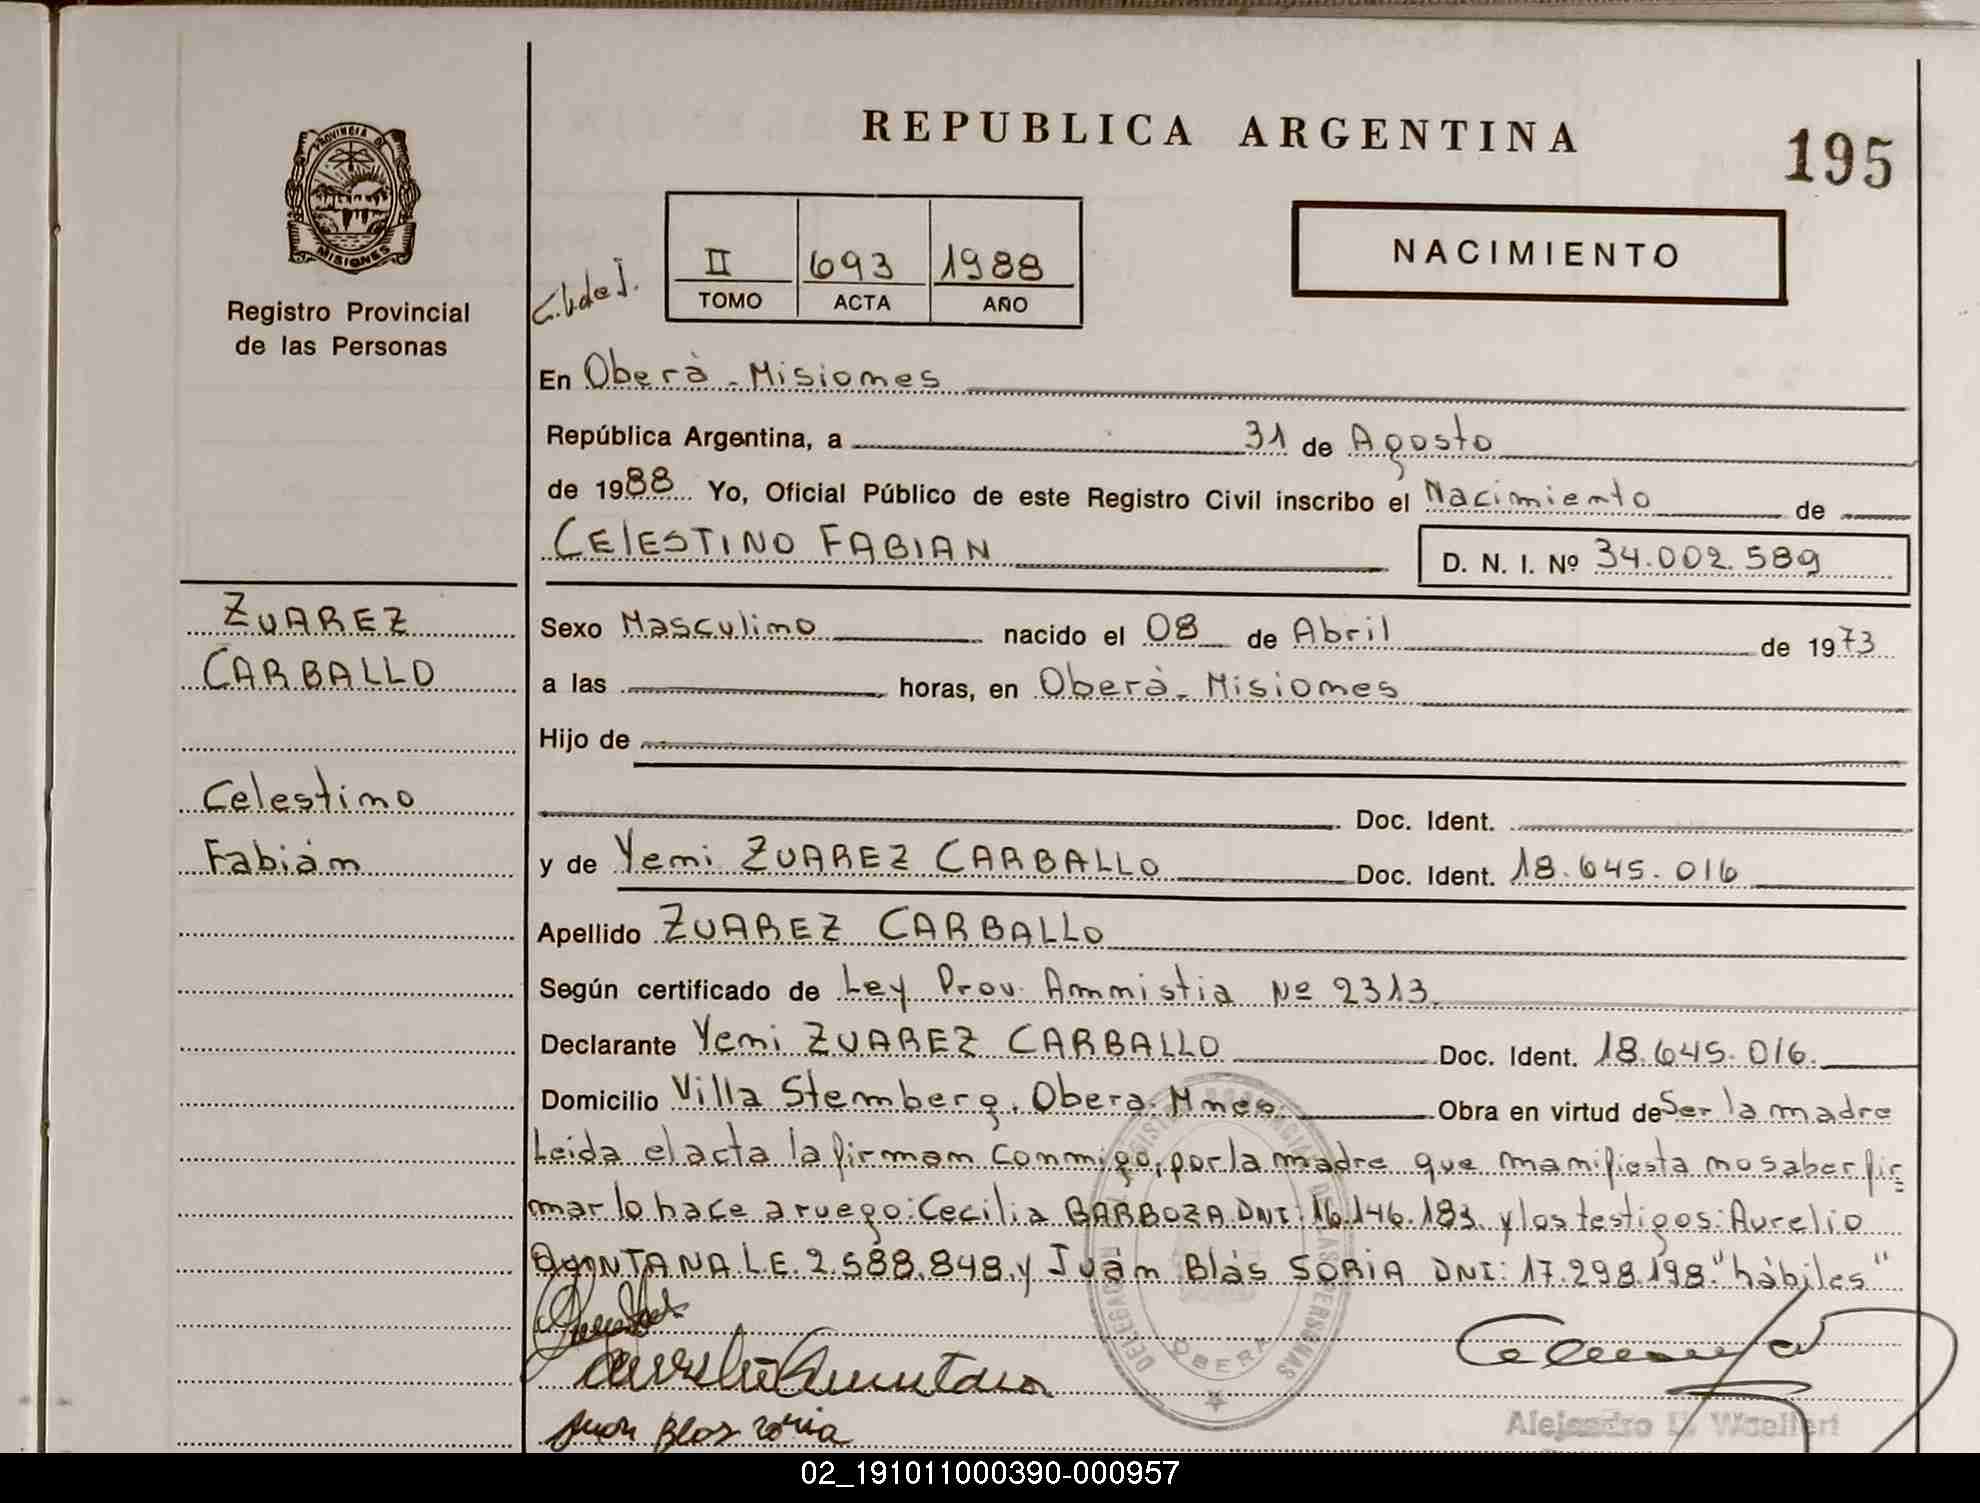 REPUBLICA ARGENTINA
195
PROVINCIA DE
MISIONES
Registro Provincial
de las Personas
II 693 1988
TOMO ACTA AÑO
NACIMIENTO
En Oberà - Misiones
República Argentina, a 31 de Agosto
de 1988 Yo, Oficial Público de este Registro Civil inscribo el Nacimiento de
CELESTINO FABIAN
D. N. I. Nº 34.002.589
ZUAREZ
CARBALLO
Celestino
Fabián
Sexo Masculino nacido el 08 de Abril de 1973
a las horas, en Oberà - Misiones
Hijo de
Doc. Ident.
y de Yeni ZUAREZ CARBALLO Doc. Ident. 18.645.016
Apellido ZUAREZ CARBALLO
Según certificado de Ley Prov. Amnistia Nº 2313.
Declarante Yeni ZUAREZ CARBALLO Doc. Ident. 18.645.016.
Domicilio Villa Stemberg. Obera. Mnes. Obra en virtud de Ser la madre
Leida el acta la firman conmigo, por la madre que manifiesta no saber fir=
mar lo hace a ruego: Cecilia BARBOZA DNI: 16.146.183 y los testigos: Aurelio
L.E. 2.588.848 y Juán Blás SORIA DNI: 17.298.198. "hábiles"
DELEGACION REGISTRO PROVINCIAL DE LAS PERSONAS
OBERA
Juan Blas Soria
Alejandro
02_191011000390-000957